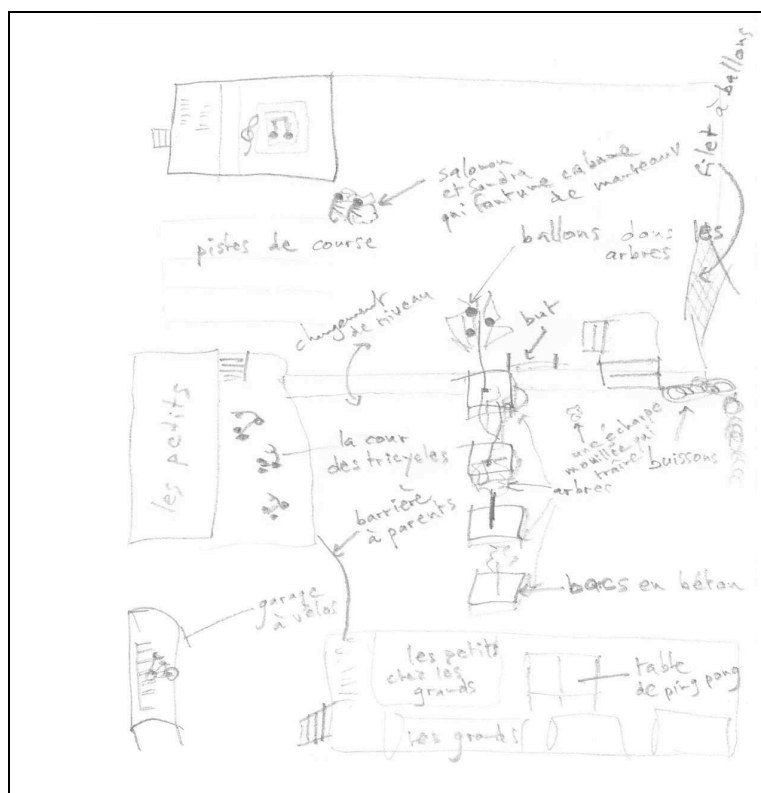 filet à ballons
salomon
et Sandra
qui font une cabane
de manteaux
pistes de course
ballons dans les
arbres
changement
de niveau
but
les petits
la cour
des tricycles
une écharpe
mouillée qui
traine
buissons
arbres
barrière
à parents
bacs en béton
garage
à vélos
les petits
chez les
grands
table
de ping pong
les grands